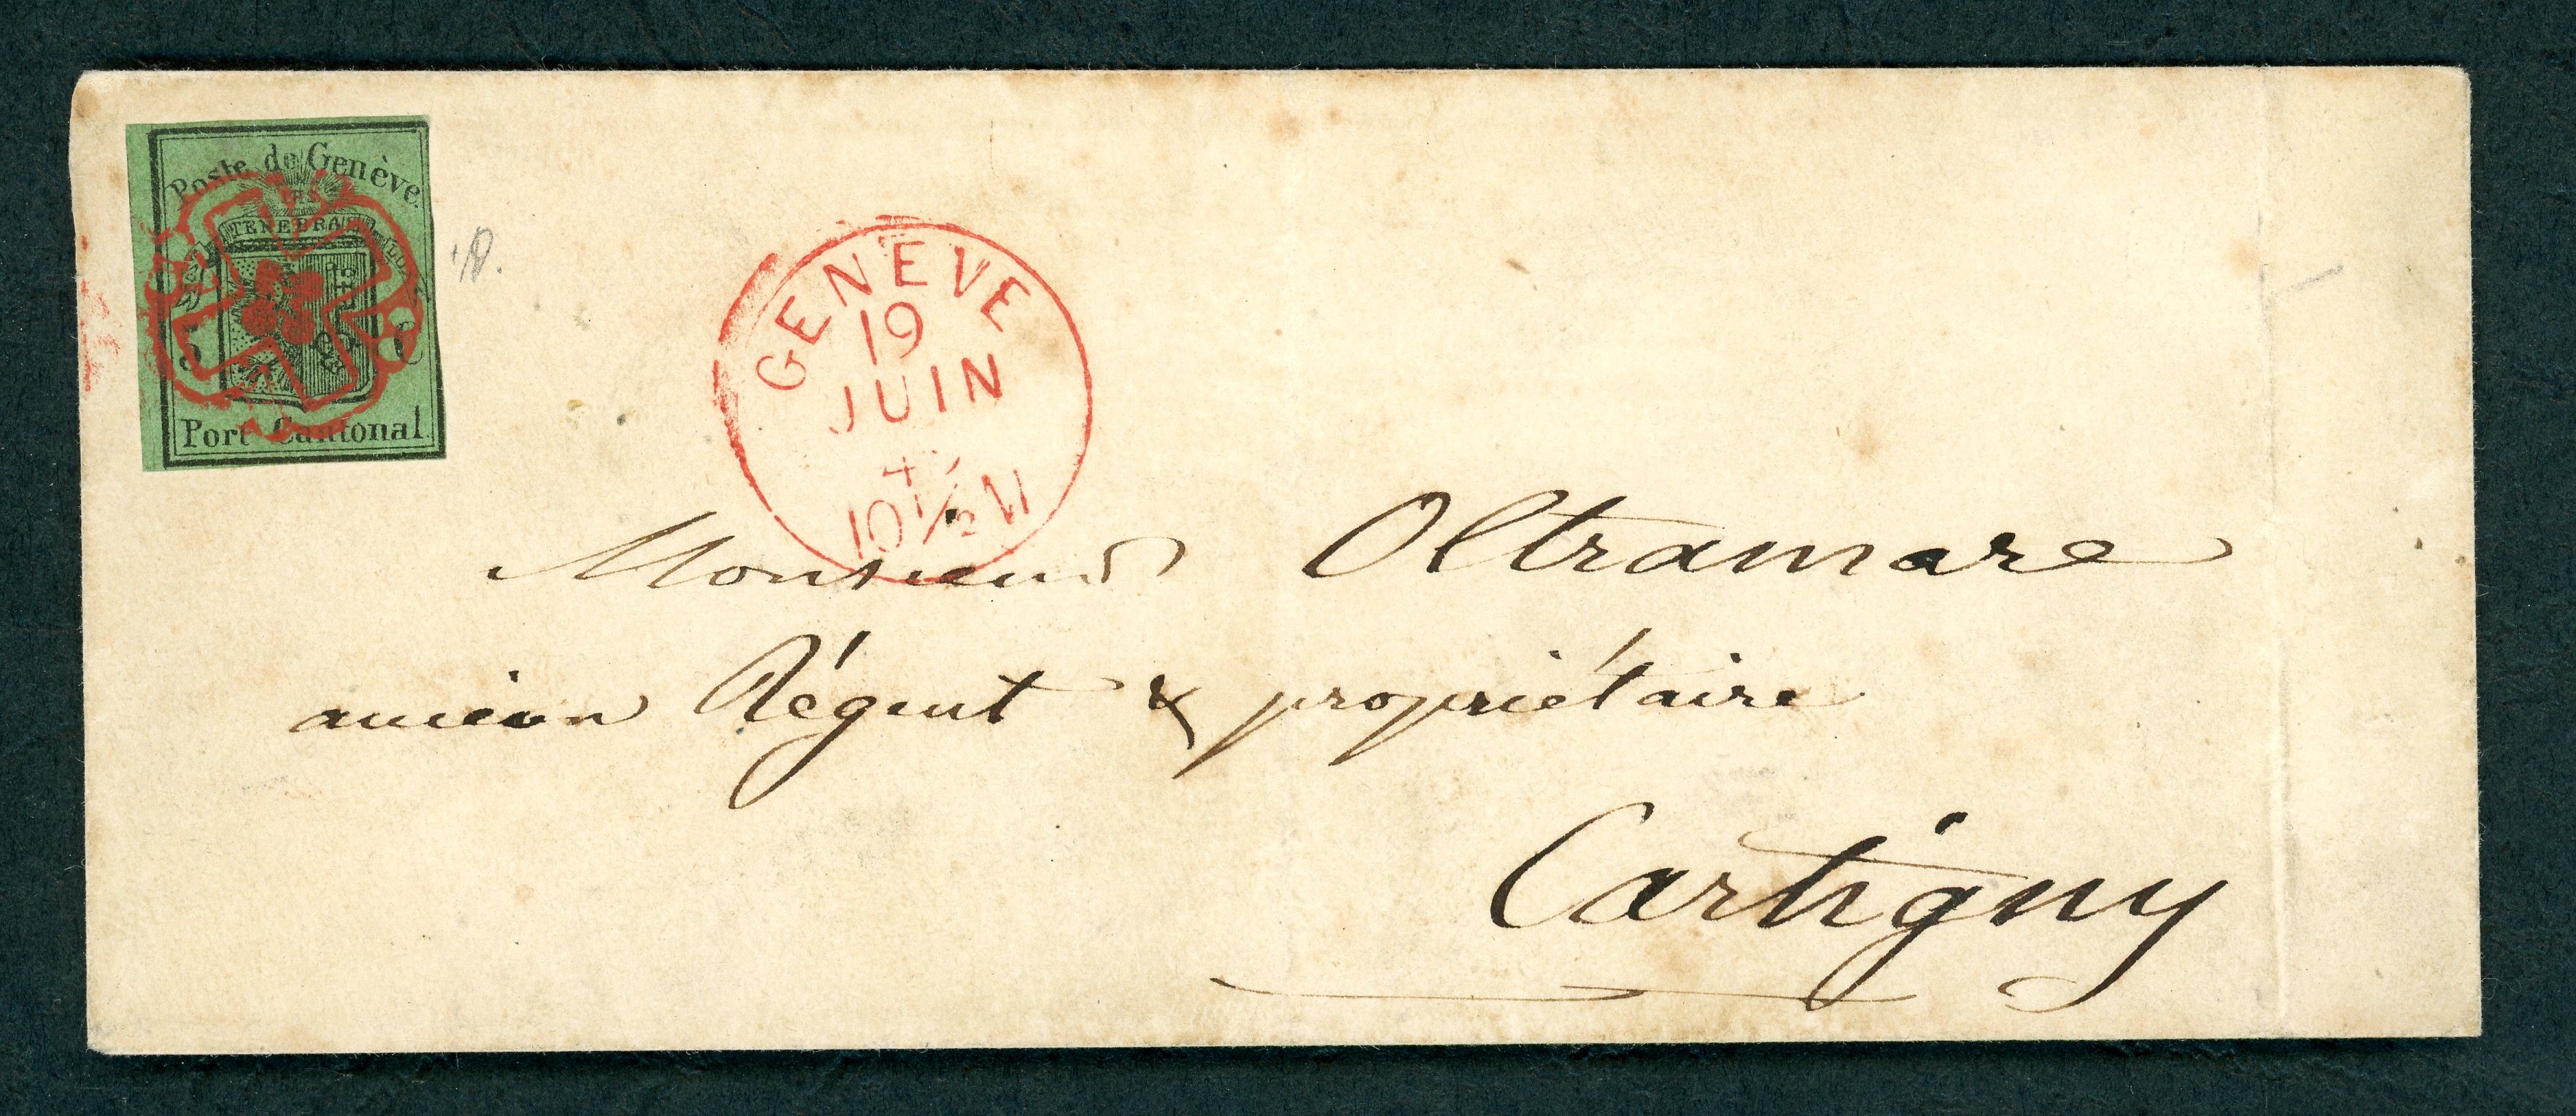 Poste de Genève
TENEBRAS
5 C
Port Cantonal
GENEVE
19
JUIN
10 1/2 M
Monsieur Oltramare
ancien Régent & propriétaire
Cartigny